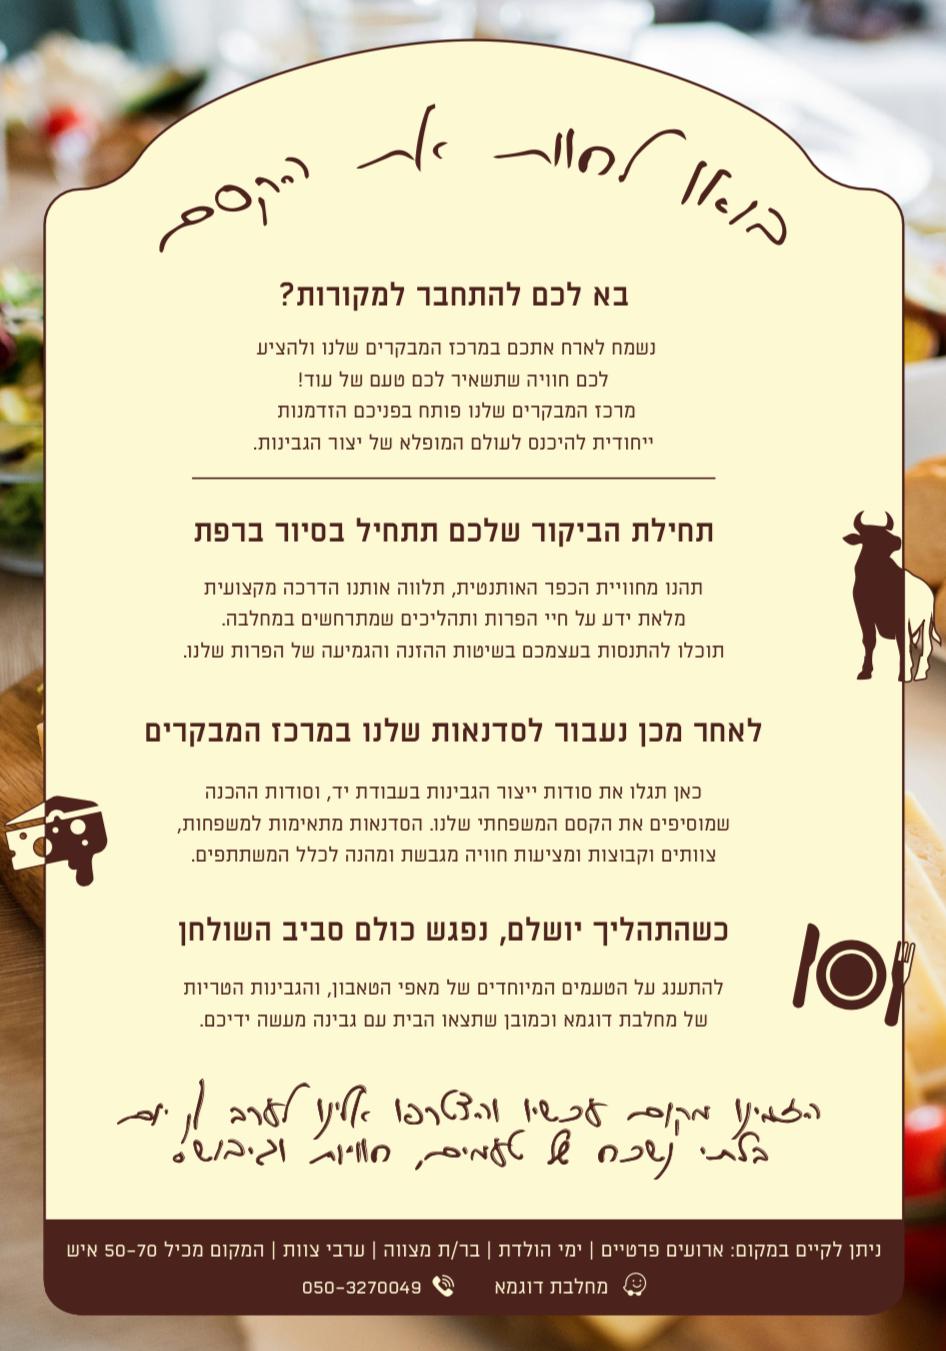 בואו לחוות את הקסם
בא לכם להתחבר למקורות?
נשמח לארח אתכם במרכז המבקרים שלנו ולהציע
לכם חוויה שתשאיר לכם טעם של עוד!
מרכז המבקרים שלנו פותח בפניכם הזדמנות
ייחודית להיכנס לעולם המופלא של יצור הגבינות.
תחילת הביקור שלכם תתחיל בסיור ברפת
תהנו מחוויית הכפר האותנטית, תלווה אותנו הדרכה מקצועית
מלאת ידע על חיי הפרות ותהליכים שמתרחשים במחלבה.
תוכלו להתנסות בעצמכם בשיטות ההזנה והגמיעה של הפרות שלנו.
לאחר מכן נעבור לסדנאות שלנו במרכז המבקרים
כאן תגלו את סודות ייצור הגבינות בעבודת יד, וסודות ההכנה
שמוסיפים את הקסם המשפחתי שלנו. הסדנאות מתאימות למשפחות,
צוותים וקבוצות ומציעות חוויה מגבשת ומהנה לכלל המשתתפים.
כשהתהליך יושלם, נפגש כולם סביב השולחן
להתענג על הטעמים המיוחדים של מאפי הטאבון, והגבינות הטריות
של מחלבת דוגמא וכמובן שתצאו הבית עם גבינה מעשה ידיכם.
הזמינו מקום עכשיו והצטרפו אלינו לערב או יום
בלתי נשכח של טעמים, חוויות וגיבוש!
ניתן לקיים במקום: ארועים פרטיים | ימי הולדת | בר/ת מצווה | ערבי צוות | המקום מכיל 50-70 איש
מחלבת דוגמא 050-3270049